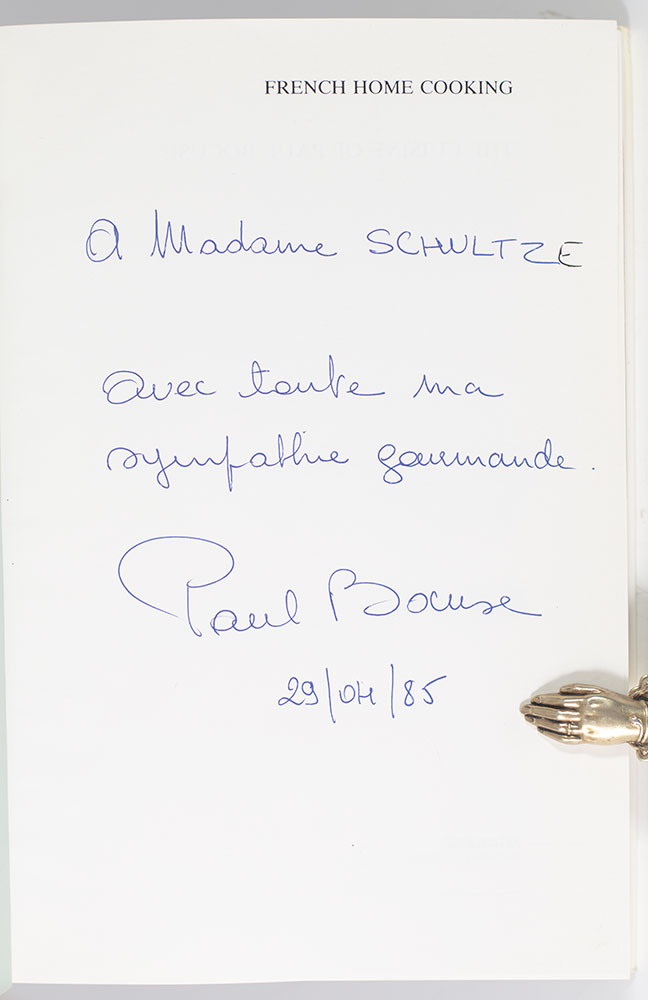 FRENCH HOME COOKING
A Madame SCHULTZE
avec toute ma
sympathie gourmande.
Paul Bocuse
29/04/85